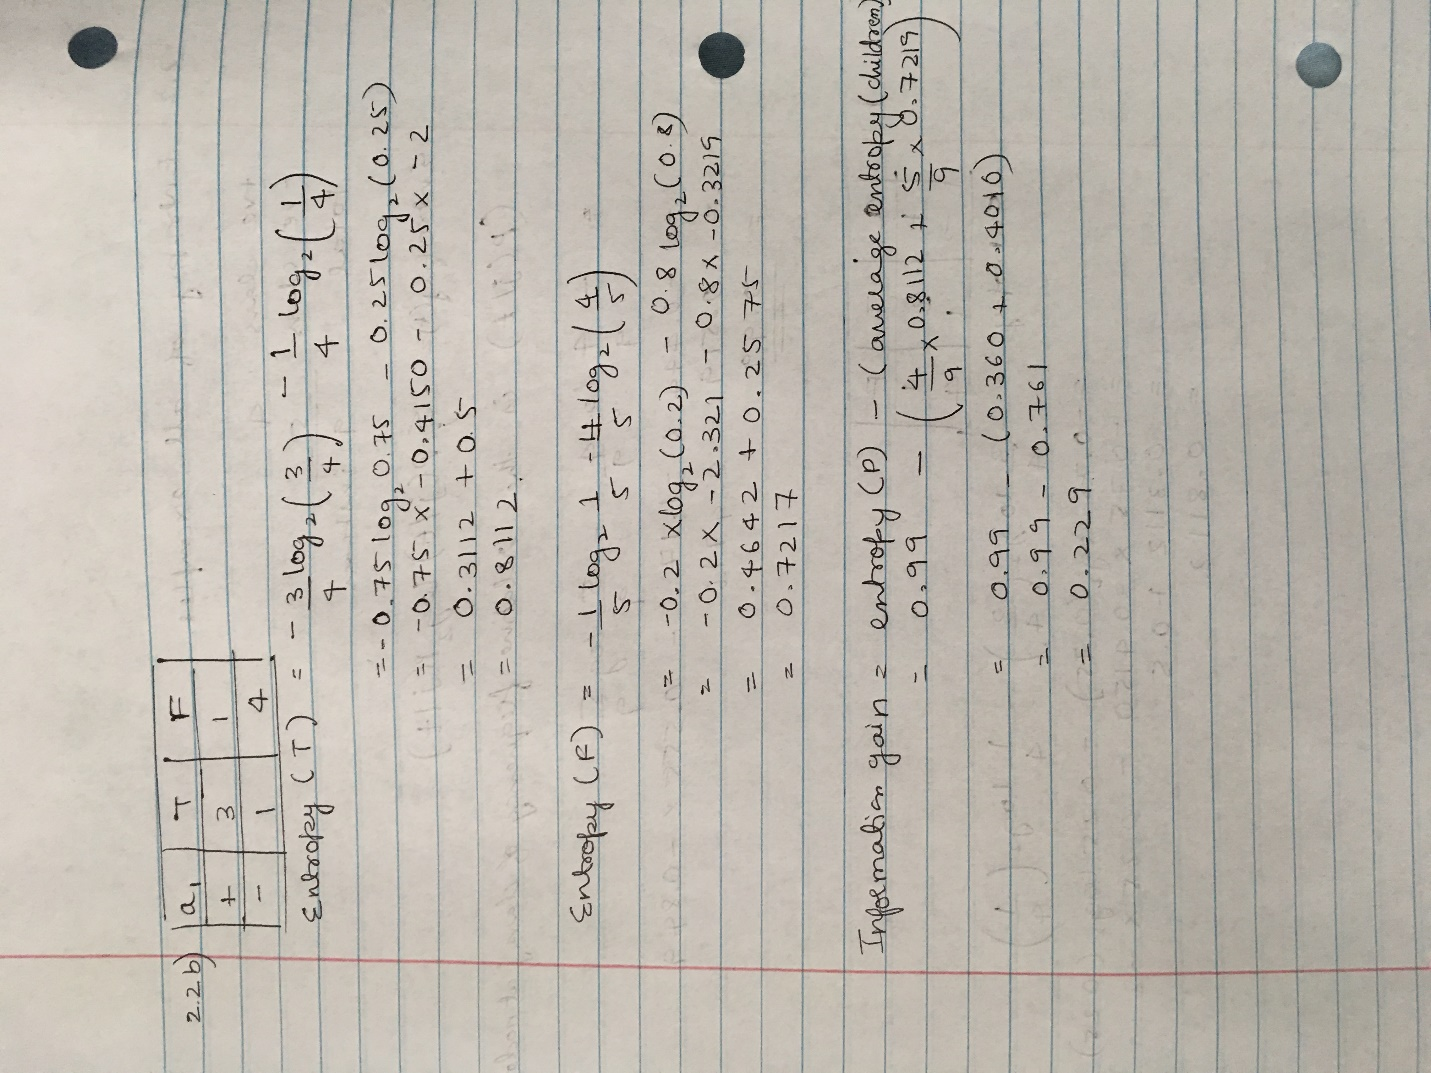 2.2b)
a₁ T F
+ 3 1
- 1 4
Entropy (T) = - 3/4 log₂ (3/4) - 1/4 log₂ (1/4)
= -0.75 log₂ 0.75 - 0.25 log₂ (0.25)
= -0.75 x -0.4150 - 0.25 x -2
= 0.3112 + 0.5
= 0.8112
Entropy (F) = - 1/5 log₂ 1/5 - 4/5 log₂ (4/5)
= -0.2 x log₂ (0.2) - 0.8 log₂ (0.8)
= -0.2 x -2.321 - 0.8 x -0.3219
= 0.4642 + 0.2575
= 0.7217
Information gain = entropy (P) - (average entropy (children)
= 0.99 - (4/9 x 0.8112 + 5/9 x 0.7219)
= 0.99 - (0.360 + 0.4010)
= 0.99 - 0.761
= 0.229